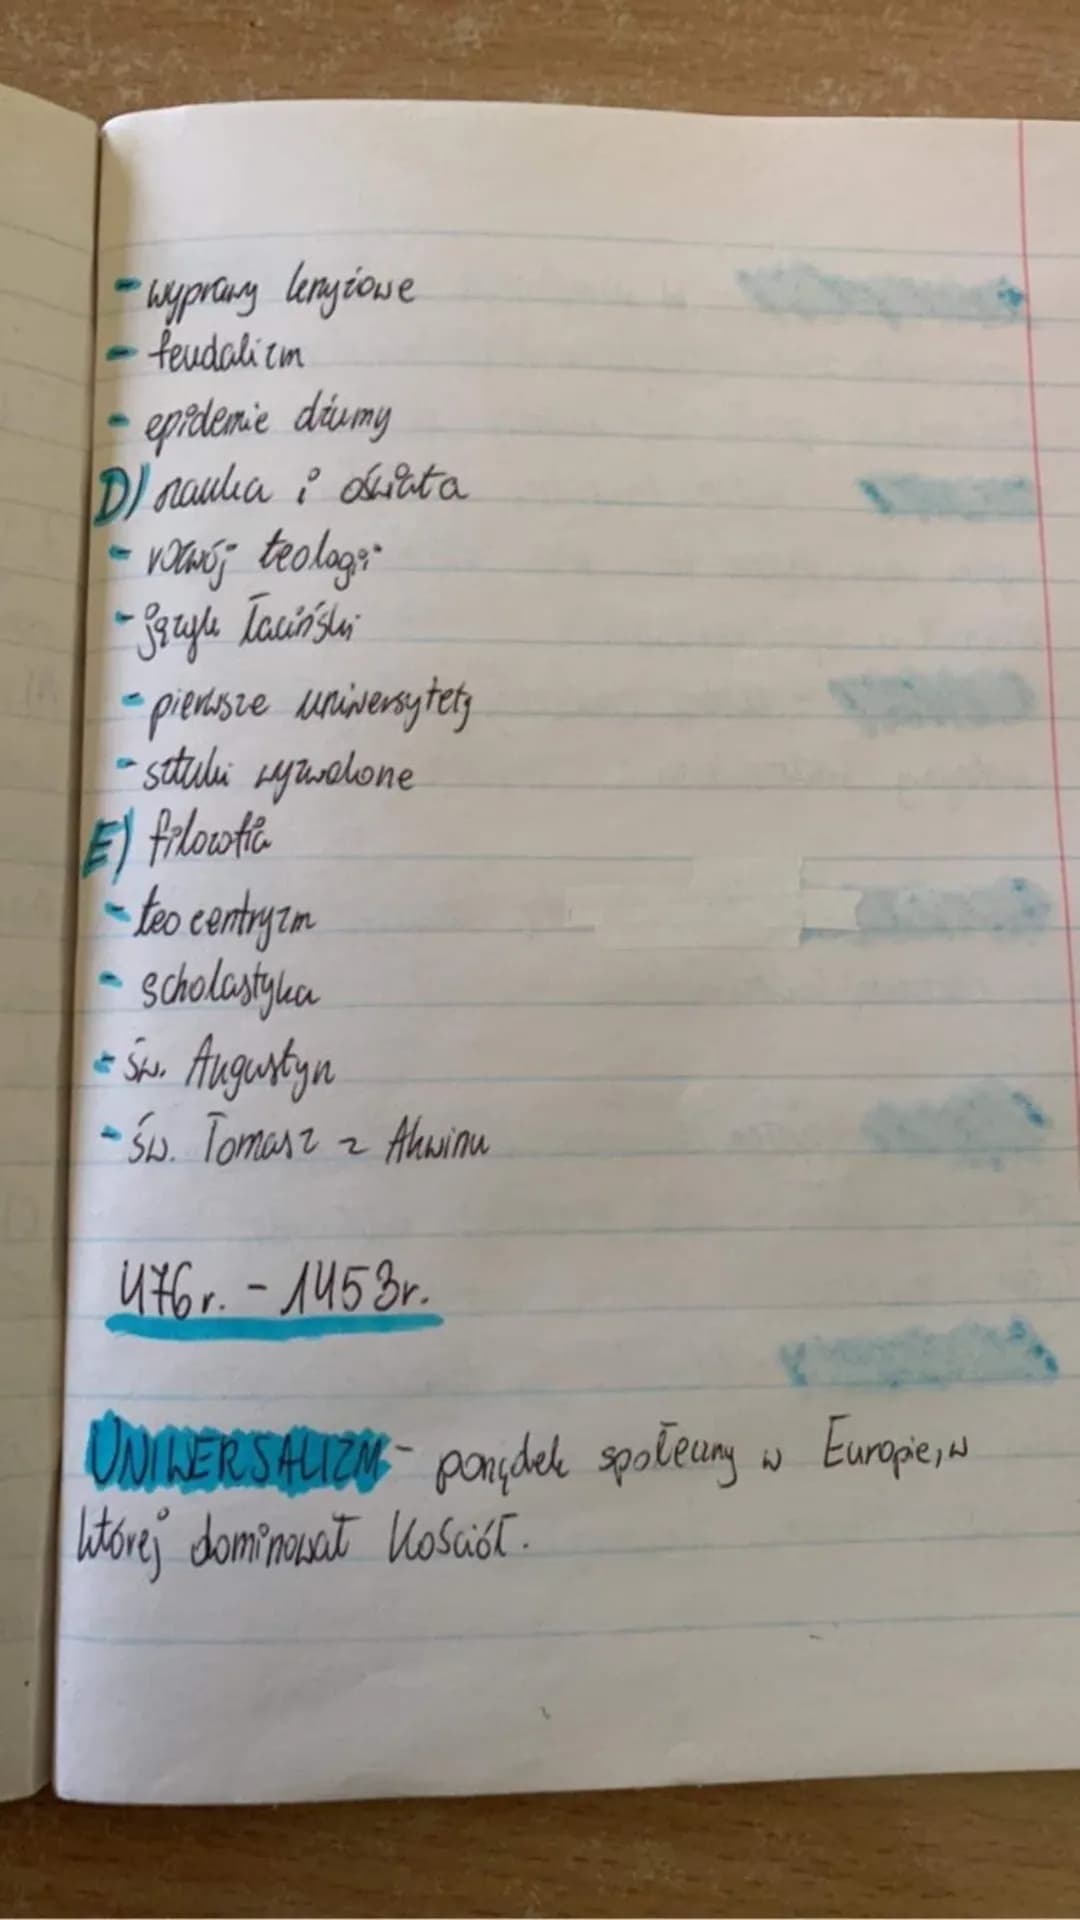 - wyprawy krzyżowe
- feudalizm
- epidemie dżumy
D) nauka i oświata
- rozwój teologii
- język łaciński
- pierwsze uniwersytety
- sztuki wyzwolone
E) filozofia
- teocentryzm
- scholastyka
- św. Augustyn
- św. Tomasz z Akwinu
476r. - 1453r.
UNIWERSALIZM - porządek społeczny w Europie, w
której dominował Kościół.